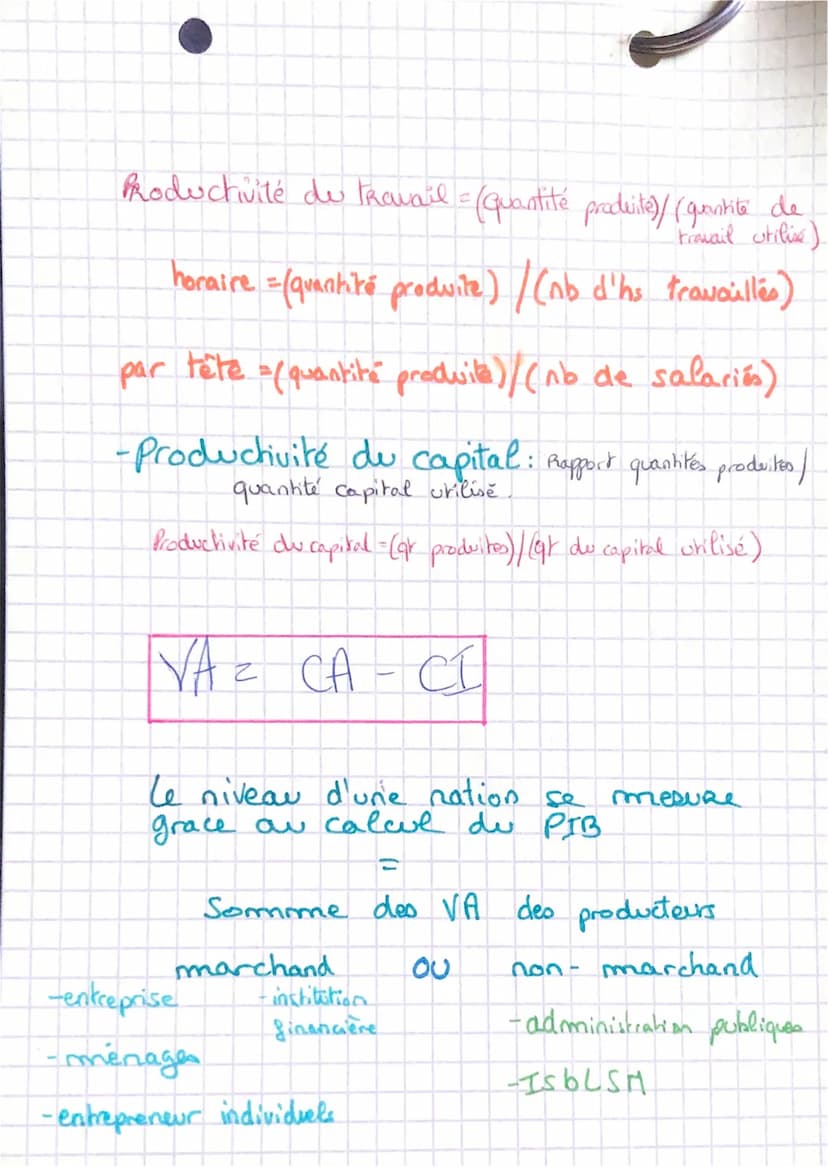 Productivité du travail = (quantité produite) / (quantité de
travail utilisé)
horaire = (quantité produite) / (nb d'hs travaillés)
par tête = (quantité produite) / (nb de salariés)
- Productivité du capital : Rapport quantités produites /
quantité capital utilisé.
Productivité du capital = (qt produites) / (qt du capital utilisé)
VA = CA - CI
Le niveau d'une nation se mesure
grace au calcul du PIB
=
Somme des VA des producteurs
marchand OU non-marchand
- entreprise - institution financière
- ménages
- entrepreneur individuels
- administration publiques
- ISbLSM